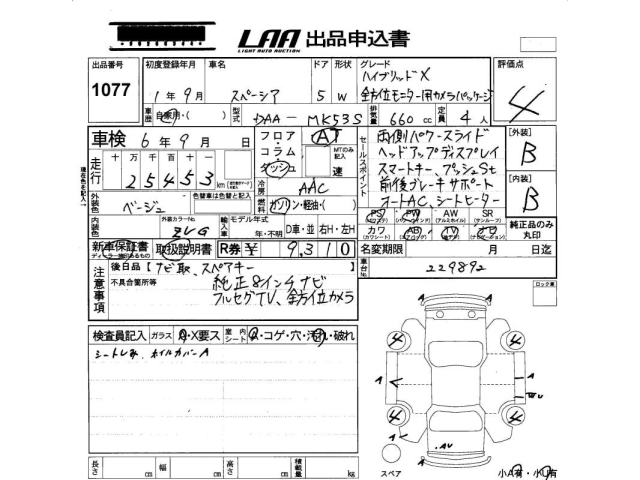 LAA 出品申込書
LIGHT AUTO AUCTION
出品番号 初度登録年月 車名 ドア 形状 グレード 評価点
1077 1年9月 スペーシア 5 W ハイブリッドX 4
全方位モニター用カメラパッケージ
車歴 自家用・( ) 型式 DAA-MK53S 排気量 660 cc 定員 4 人
車検 6年9月 日 フロア・コラム・ダッシュ AT MTのみ記入 速
走行 十 万 千 百 十
25453 km
冷房 AAC
外装色 ベージュ 色替車は色替と記入 燃料 ガソリン・軽油・( )
内装色 外装カラーNo. ZVG 輸入車 モデル年式 年・不明 D車・並 右H・左H
新車保証書 取扱説明書 R券 ¥ 9,310
セールスポイント 両側パワースライド
ヘッドアップディスプレイ
スマートキー、プッシュSt
前後ブレーキサポート
オートAC、シートヒーター
[外装] B
[内装] B
PS PW AW SR
(パワステ) (パワーウインド) (アルミホイル) (サンルーフ)
カワ AB TV ナビ
(カワシート) (エアバッグ)
純正品のみ丸印
名変期限 月 日迄
車台No. 229892
注意事項 後日品 [ナビ取、スペアキー
不具合箇所等 純正8インチナビ
フルセグTV、全方位カメラ
ロック車
検査員記入 ガラス X要ス 室内シート コゲ・穴・汚れ・破れ
シートしみ、ホイルカバーA
4 4
A A
W U
4 4
A U A
スペア 小A有・小U有
長さ cm 幅 cm 高さ cm 積載量 kg